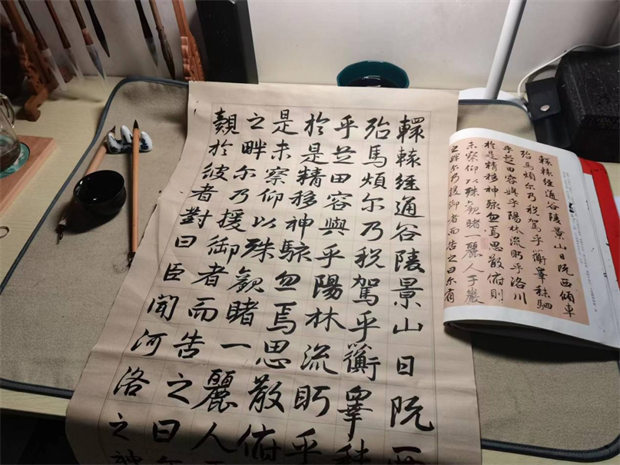 轘轅經通谷陵景山日既西
殆馬煩尔乃税駕乎蘅皋秣
乎芝田容與乎陽林流眄乎
於是精移神駭忽焉思散俯
是未察仰以殊觀睹一麗人
之畔尔乃援御者而告之曰
覿於彼者對曰臣聞河洛之神
轘轅經通谷陵景山日既西傾車
殆馬煩尔乃税駕乎蘅皋秣駟
乎芝田容與乎陽林流眄乎洛川
於是精移神駭忽焉思散俯則
未察仰以殊觀睹一麗人于巖
之畔尔乃援御者而告之曰尔有